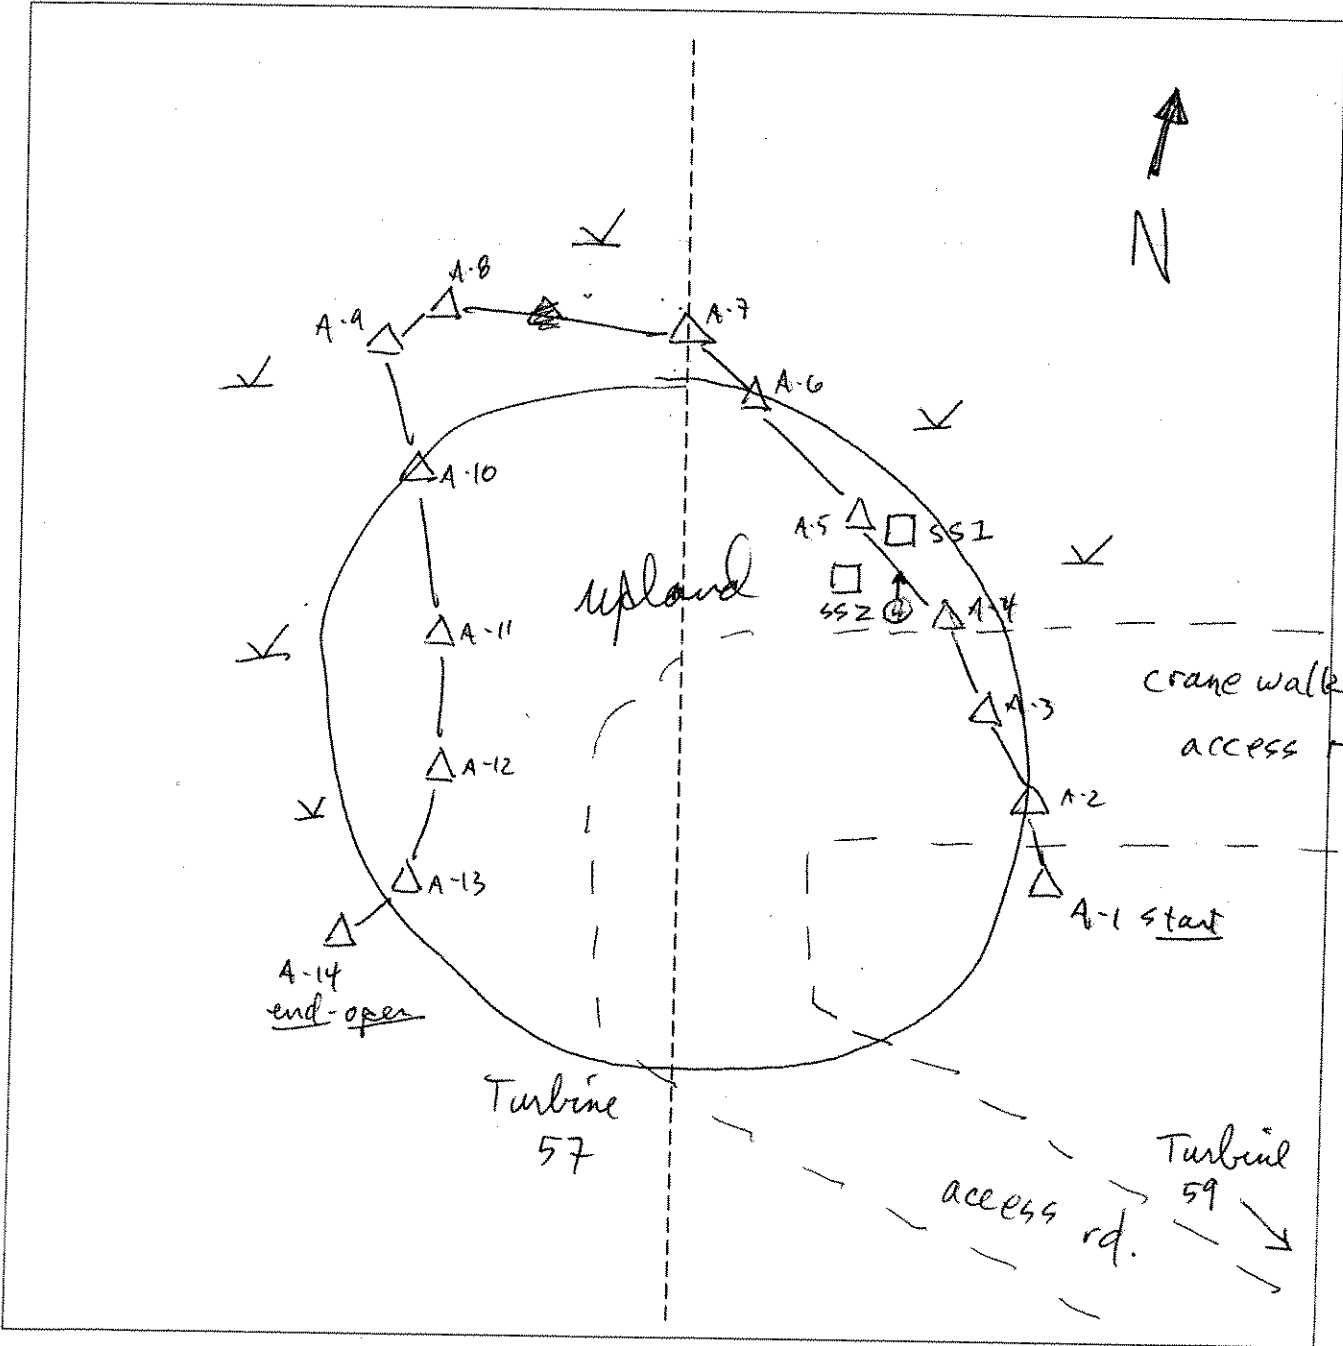 N
A-8
A-7
A-9
A-6
A-10
A-5
SS1
upland
SS2 4
A-4
A-11
crane walk
A-3
access r
A-12
A-2
A-13
A-1 start
A-14
end-open
Turbine
57
Turbine
59
access rd.